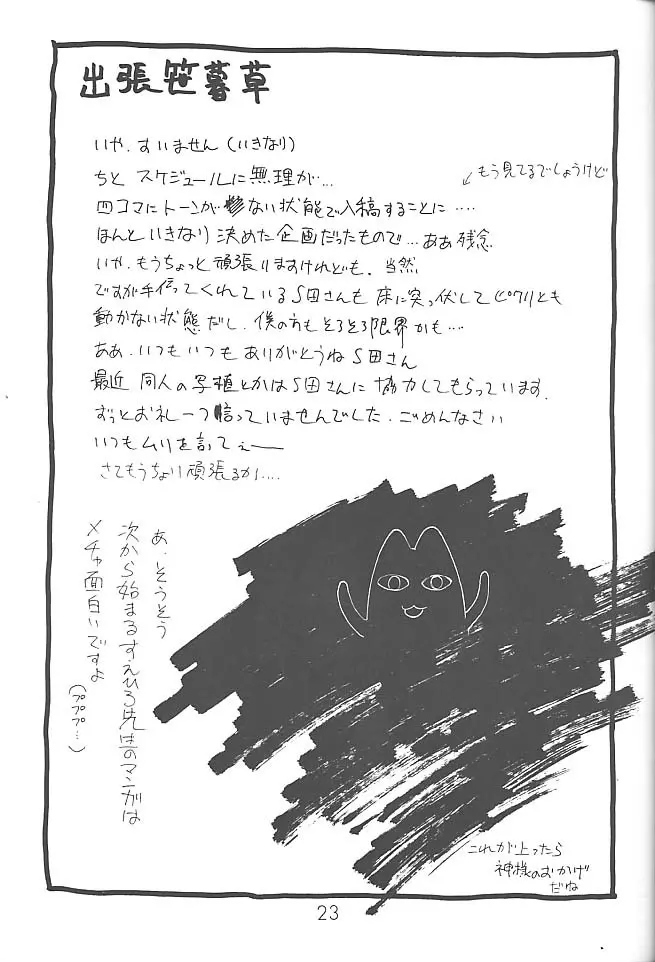 出張笹暮草
いや、すいません(いきなり)
ちと スケジュールに無理が…
↙もう見てるでしょうけど
四コマにトーンが ない状態で入稿することに‥‥
ほんといきなり決めた企画だったもので…ああ残念
いや、もうちょっと頑張りますけれども、当然
ですが手伝ってくれているS田さんも 床に突っ伏してピクリとも
動かない状態だし、僕の方もそろそろ限界かも…
ああ、いつもいつも ありがとうねS田さん
最近 同人の写植とかはS田さんに協力してもらっています。
ずっとお礼一つ言っていませんでした、ごめんなさい
いつもムリを言ってぇ――
さてもうちょい頑張るか‥‥
あ、そうそう
次から始まるすえひろ先生のマンガは
メチャ面白いですよ
(ププププ…)
これが上ったら
神様のおかげ
だね
23